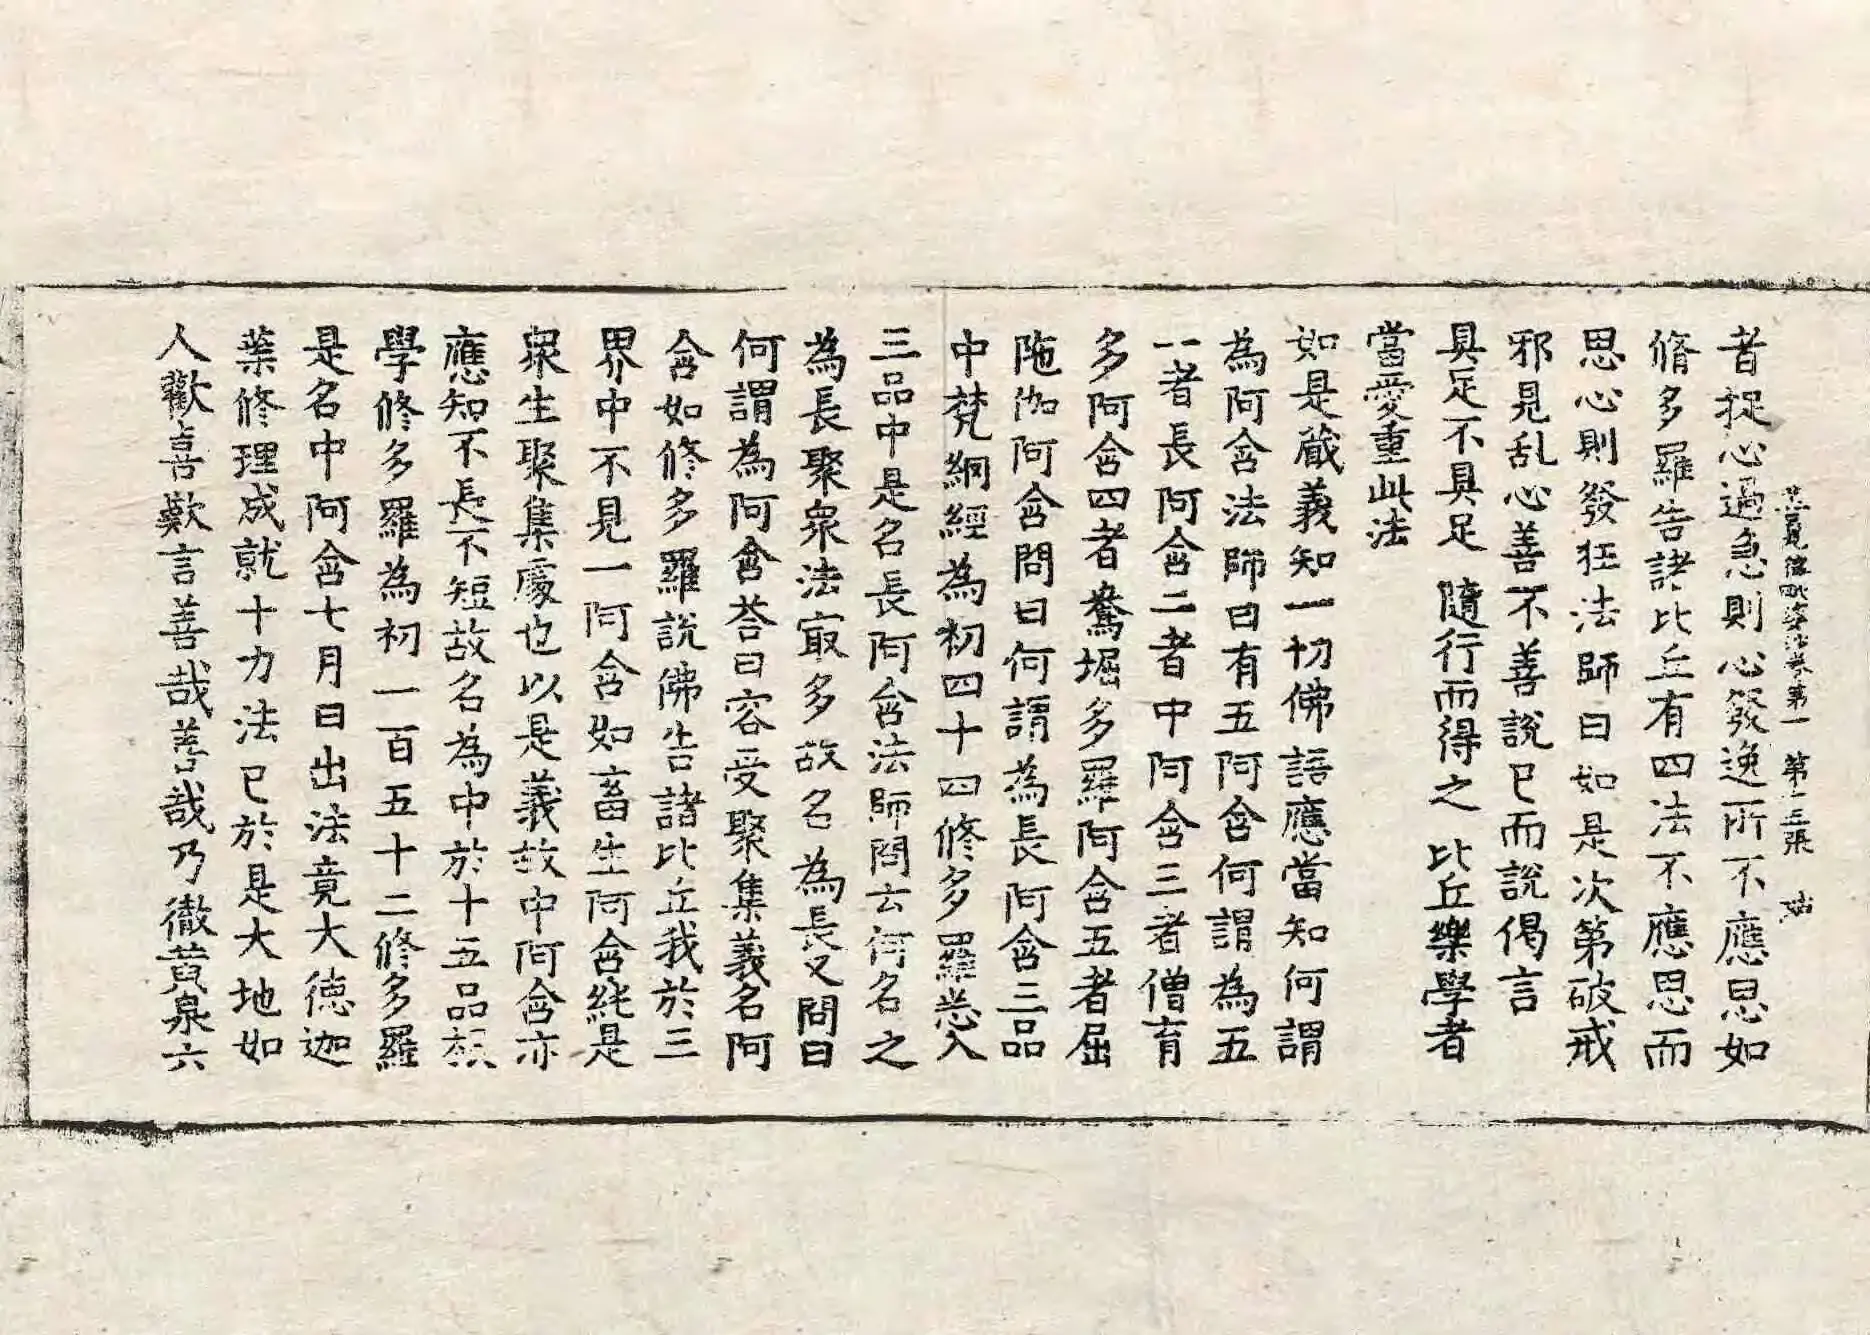 者捉心過急則心發逸所不應思如
脩多羅告諸比丘有四法不應思而
思心則發狂法師曰如是次第破戒
邪見乱心善不善說已而說偈言
具足不具足 隨行而得之 比丘樂學者
當愛重此法
如是藏義知一切佛語應當知何謂
為阿含法師曰有五阿含何謂為五
一者長阿含二者中阿含三者僧育
多阿含四者鴦堀多羅阿含五者屈
陁伽阿含問曰何謂為長阿含三品
中梵網經為初四十四修多羅悉入
三品中是名長阿含法師問云何名之
為長聚衆法㝡多故名為長又問曰
何謂為阿含荅曰容受聚集義名阿
含如修多羅說佛告諸比丘我於三
界中不見一阿含如畜生阿含純是
衆生聚集處也以是義故中阿含亦
應知不長不短故名為中於十五品
學修多羅為初一百五十二修多羅
是名中阿含七月日出法竟大德迦
葉修理成就十力法已於是大地如
人歡喜歎言善哉善哉乃徹黃泉六